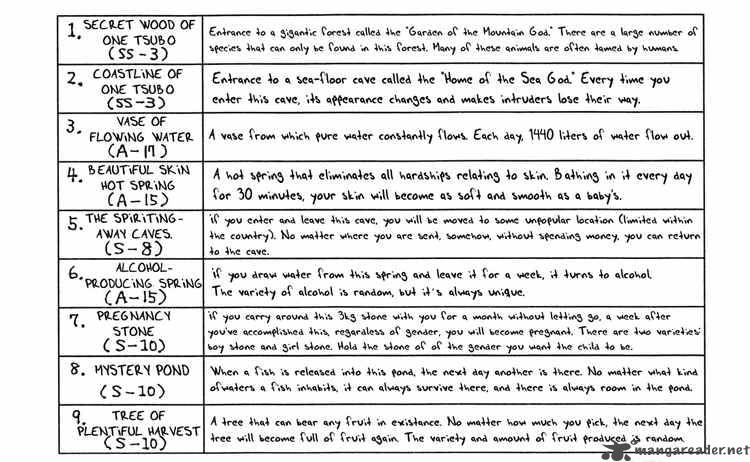 1. SECRET WOOD OF
ONE TSUBO
(SS-3)
Entrance to a gigantic forest called the "Garden of the Mountain God." There are a large number of
species that can only be found in this forest. Many of these animals are often tamed by humans.
2. COASTLINE OF
ONE TSUBO
(SS-3)
Entrance to a sea-floor cave called the "Home of the Sea God." Every time you
enter this cave, its appearance changes and makes intruders lose their way.
3. VASE OF
FLOWING WATER
(A-17)
A vase from which pure water constantly flows. Each day, 1440 liters of water flow out.
4. BEAUTIFUL SKIN
HOT SPRING
(A-15)
A hot spring that eliminates all hardships relating to skin. Bathing in it every day
for 30 minutes, your skin will become as soft and smooth as a baby's.
5. THE SPIRITING-
AWAY CAVES.
(S-8)
if you enter and leave this cave, you will be moved to some unpopular location (limited within
the country). No matter where you are sent, somehow, without spending money, you can return
to the cave.
6. ALCOHOL-
PRODUCING SPRING
(A-15)
if you draw water from this spring and leave it for a week, it turns to alcohol.
The variety of alcohol is random, but it's always unique.
7. PREGNANCY
STONE
(S-10)
if you carry around this 3kg stone with you for a month without letting go, a week after
you've accomplished this, regardless of gender, you will become pregnant. There are two varieties:
boy stone and girl stone. Hold the stone of of the gender you want the child to be.
8. MYSTERY POND
(S-10)
When a fish is released into this pond, the next day another is there. No matter what kind
of waters a fish inhabits, it can always survive there, and there is always room in the pond.
9. TREE OF
PLENTIFUL HARVEST
(S-10)
A tree that can bear any fruit in existance. No matter how much you pick, the next day the
tree will become full of fruit again. The variety and amount of fruit produced is random.
mangareader.net